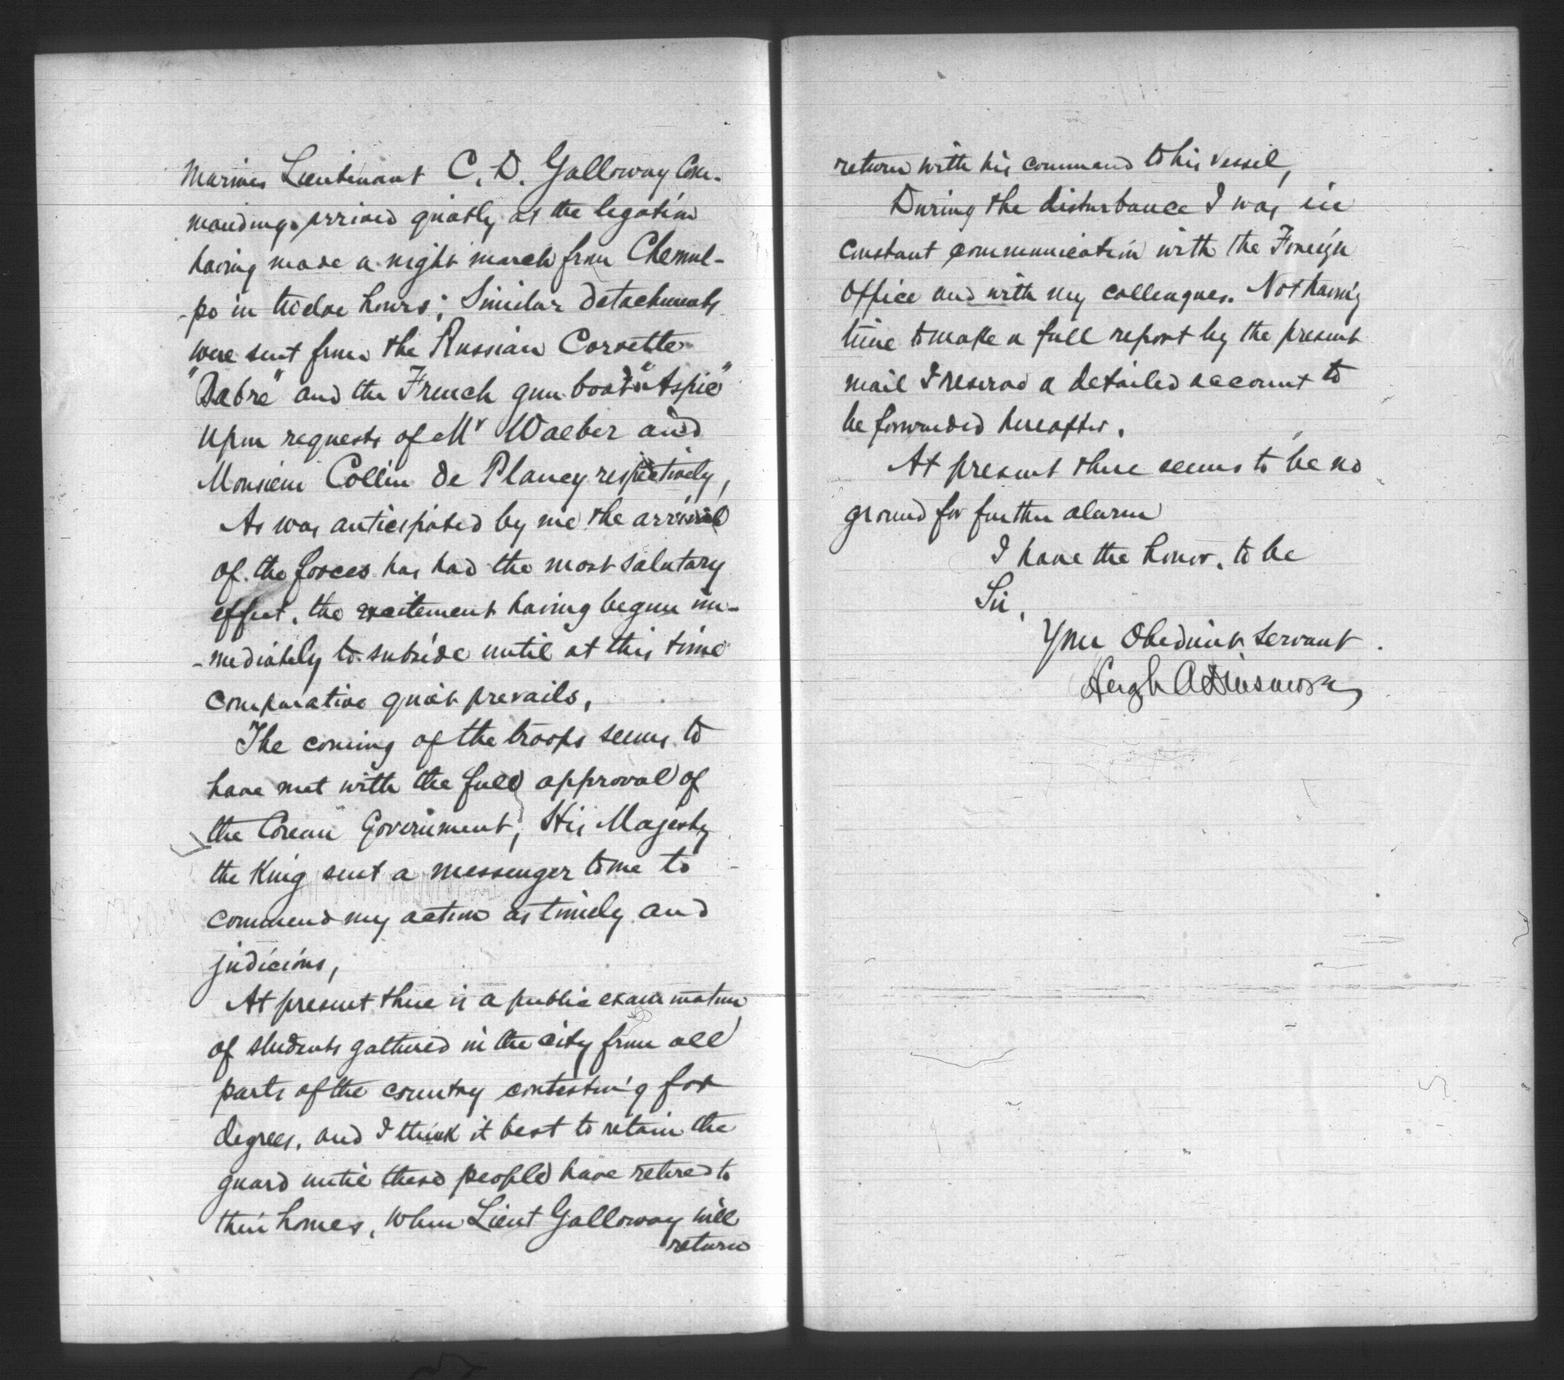 Marines Lieutenant C. D. Galloway Com-
manding, arrived quietly at the legation
having made a night march from Chemul-
-po in twelve hours; Similar detachments
were sent from the Russian Corvette
and the French gun-boat "Aspic"
upon requests of Mr Waeber and
Monsieur Collin de Plancy respectively,
As was anticipated by me the arrival
of the forces has had the most salutary
effect, the excitement having begun im-
-mediately to subside until at this time
comparative quiet prevails,
The coming of the troops seems to
have met with the full approval of
the Corean Government; His Majesty
the King sent a messenger to me to
commend my action as timely and
judicious,
At present there is a public examination
of students gathered in the city from all
parts of the country contesting for
degrees, and I think it best to retain the
guard until these people have retired to
their homes, when Lieut Galloway will
return
return with his command to his vessel,
During the disturbance I was in
constant communication with the Foreign
Office and with my colleagues. Not having
time to make a full report by the present
mail I reserve a detailed account to
be forwarded hereafter.
At present there seems to be no
ground for further alarm
I have the honor, to be
Sir,
Your Obedient Servant.
Hugh A Dinsmore